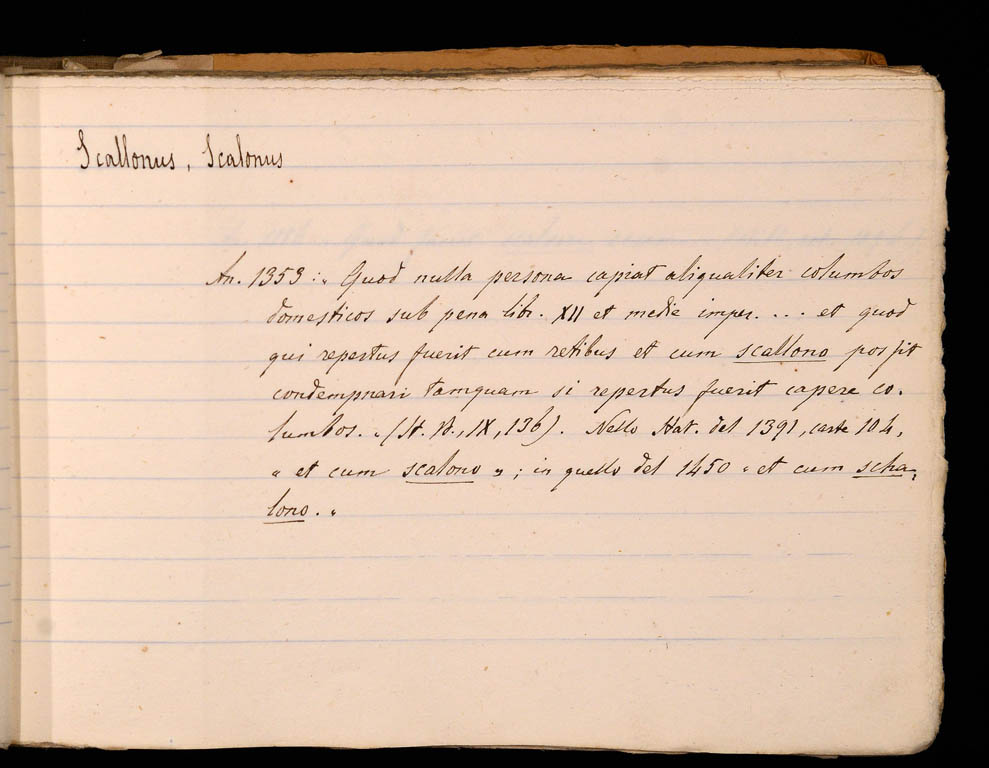 Scallonus, Scalonus
An. 1353: „ Quod nulla persona capiat aliqualiter columbos
domesticos sub pena libr. XII et medie imper. ... et quod
qui repertus fuerit cum retibus et cum scallono possit
condempnari tamquam si repertus fuerit capere co-
lumbos. „ (St. B., IX, 136). Nello Stat. del 1391, carte 104,
„ et cum scalono „; in quello del 1450 „ et cum scha-
lono. „